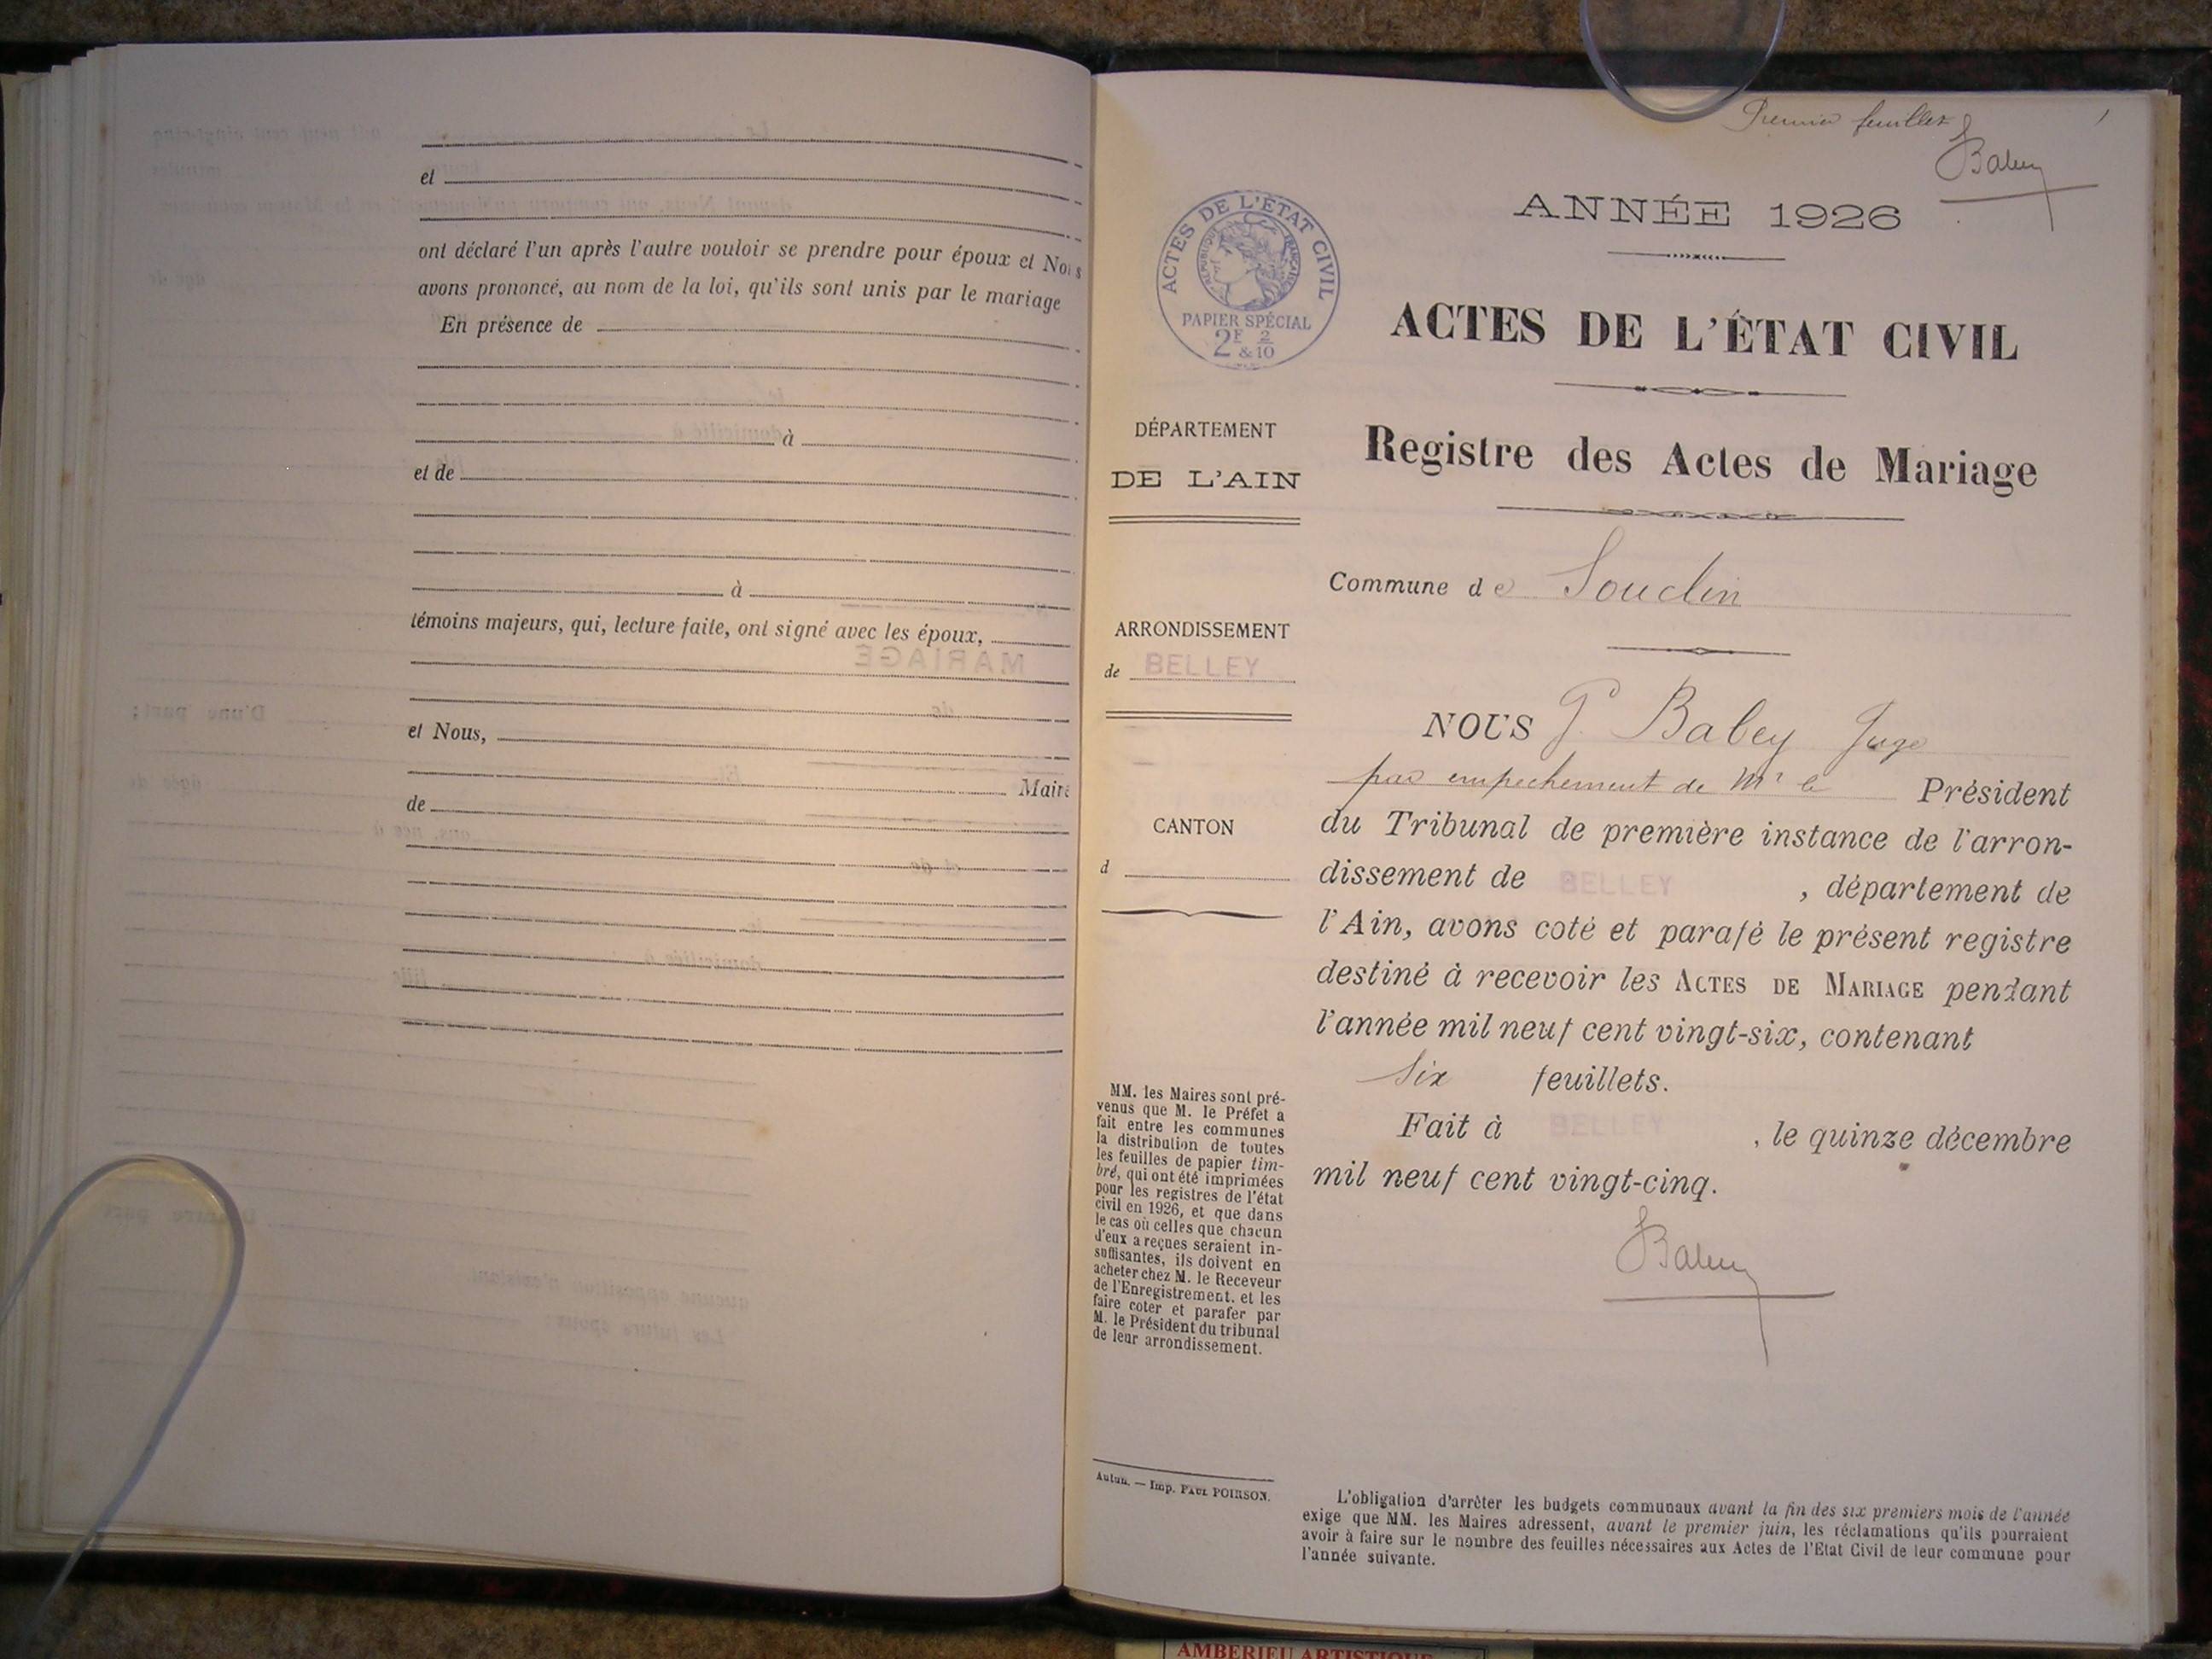 et
ont déclaré l'un après l'autre vouloir se prendre pour époux et Nous
avons prononcé, au nom de la loi, qu'ils sont unis par le mariage
En présence de
à
et de
à
témoins majeurs, qui, lecture faite, ont signé avec les époux,
et Nous,
Maire
de
Premier feuillet
Babey
ANNÉE 1926
ACTES DE L'ÉTAT CIVIL
RÉPUBLIQUE FRANÇAISE
PAPIER SPÉCIAL
2F 2
& 10
ACTES DE L'ÉTAT CIVIL
DÉPARTEMENT
DE L'AIN
Registre des Actes de Mariage
Commune de Souclin
ARRONDISSEMENT
de BELLEY
CANTON
d
NOUS P. Babey Juge
par empechement de Mr le Président
du Tribunal de première instance de l'arron-
dissement de BELLEY, département de
l'Ain, avons coté et parafé le présent registre
destiné à recevoir les ACTES DE MARIAGE pendant
l'année mil neuf cent vingt-six, contenant
six feuillets.
Fait à BELLEY, le quinze décembre
mil neuf cent vingt-cinq.
Babey
MM. les Maires sont pré-
venus que M. le Préfet a
fait entre les communes
la distribution de toutes
les feuilles de papier tim-
bré, qui ont été imprimées
pour les registres de l'état
civil en 1926, et que dans
le cas où celles que chacun
d'eux a reçues seraient in-
suffisantes, ils doivent en
acheter chez M. le Receveur
de l'Enregistrement, et les
faire coter et parafer par
M. le Président du tribunal
de leur arrondissement.
Autun. — Imp. PAUL POIRSON.
L'obligation d'arrêter les budgets communaux avant la fin des six premiers mois de l'année
exige que MM. les Maires adressent, avant le premier juin, les réclamations qu'ils pourraient
avoir à faire sur le nombre des feuilles nécessaires aux Actes de l'Etat Civil de leur commune pour
l'année suivante.
AMBERIEU ARTISTIQUE